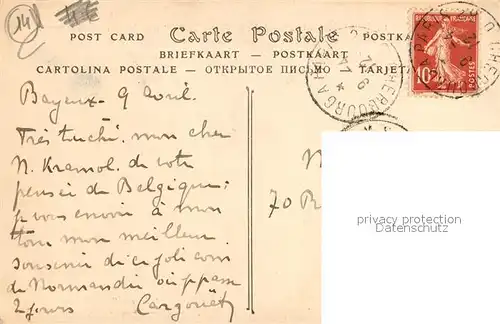 14
POST CARD Carte Postale POSTKA
BRIEFKAART — POSTKAART
CARTOLINA POSTALE — ОТКРЫТОЕ ПИСЬМО TARJETA
REPUBLIQUE FRANCAISE
10c
POSTES
CHERBOURG A
Bayeux - 9 avril.
Très touché, mon cher
N. de votre
pensée de Belgique;
je vous envoie à mon
tour mon meilleur
souvenir de ce joli coin
de Normandie où je passe
2 jours
70
privacy protection
Datenschutz